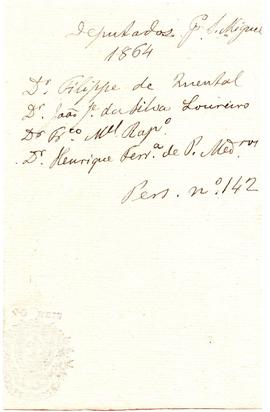 Deputados. Pr. S. Miguel
1864
Dr. Filippe de Quental
Dr. João Je. da Silva Loureiro
Dr. Frco. Mel Rapo.
Dr. Henrique Ferra. de P. Medros
Pers. no. 142